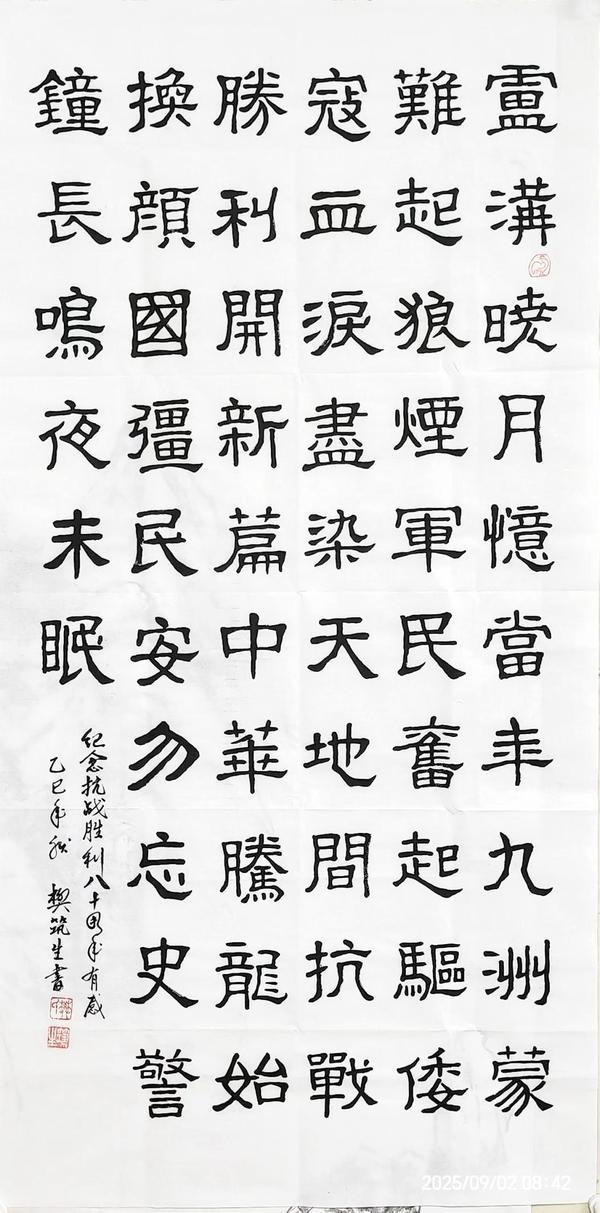 盧溝暁月憶當年九洲蒙
難起狼煙軍民奮起驅倭
寇血淚盡染天地間抗戰
勝利開新篇中華騰龍始
換顔國彊民安勿忘史警
鐘長鳴夜未眠
纪念抗战胜利八十周年有感
乙巳年秋 樊筑生書
2025/09/02 08:42